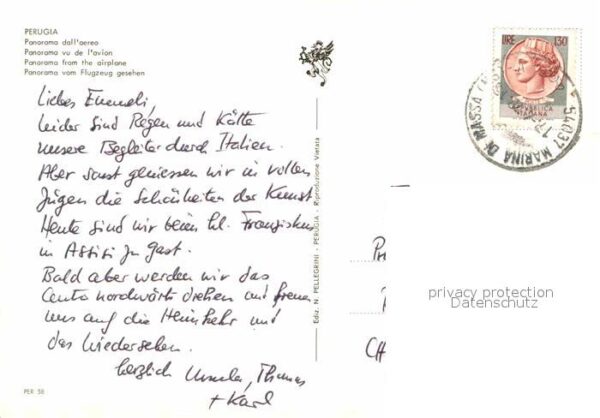 PERUGIA
Panorama dall'aereo
Panorama vu de l'avion
Panorama from the airplane
Panorama vom Flugzeug gesehen
Liebes
leider sind Regen und Kälte
unsere Begleiter durch Italien.
Aber sonst geniessen wir in vollen
Zügen die Schönheiten der Kunst
Heute sind wir beim hl. Franziskus
in Assisi zu Gast.
Bald aber werden wir das
nordwärts drehen und freuen
uns auf die Heimkehr und
das Wiedersehen.
herzlich Ursula, Thomas
+ Karl
PER 58
Ediz. N. PELLEGRINI - PERUGIA - Riproduzione Vietata
LIRE 130
REPUBBLICA
ITALIANA
54037 MARINA DI MASSA
P
CH
privacy protection
Datenschutz